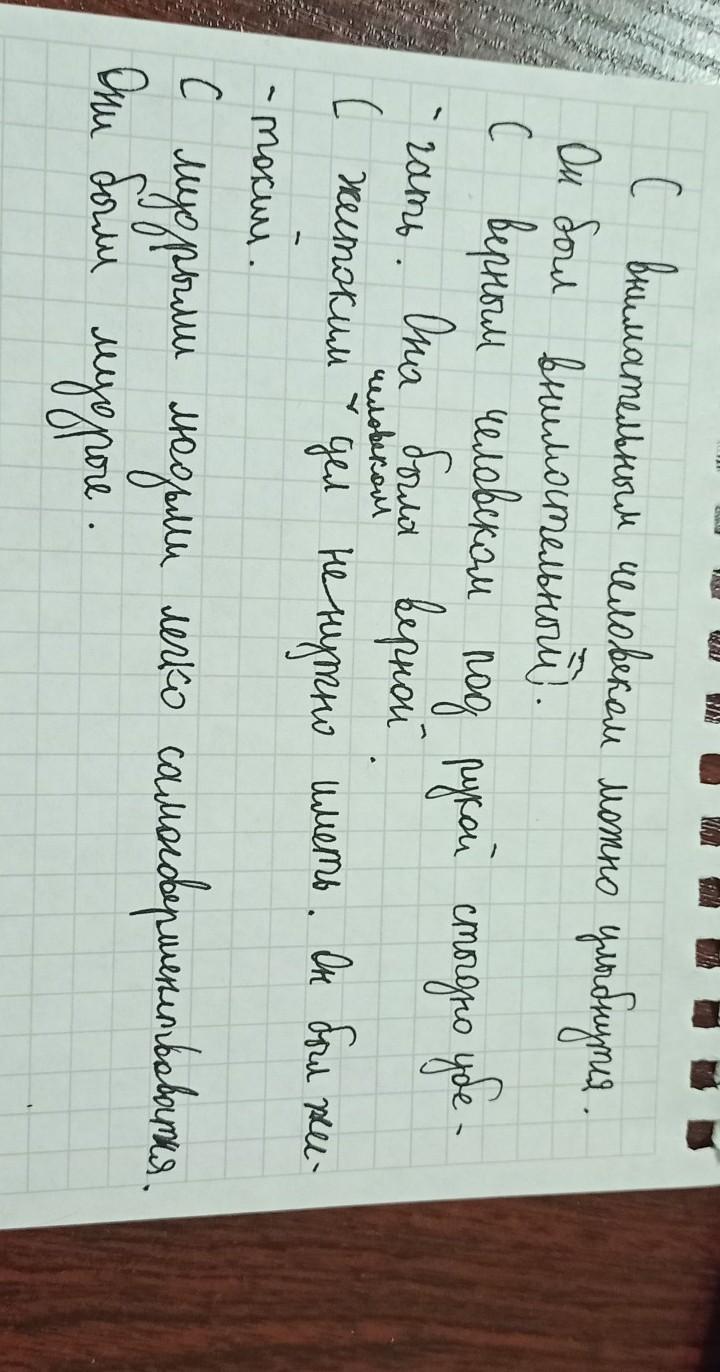 С внимательным человеком можно улыбнутся.
Он был внимательный.
С верным человеком под рукой стыдно убе-
-гать. Она была верной.
С жестоким человеком дел не нужно иметь. Он был жи-
-токим.
С мудрыми людьми легко самосовершенствоваться.
Они были мудрые.